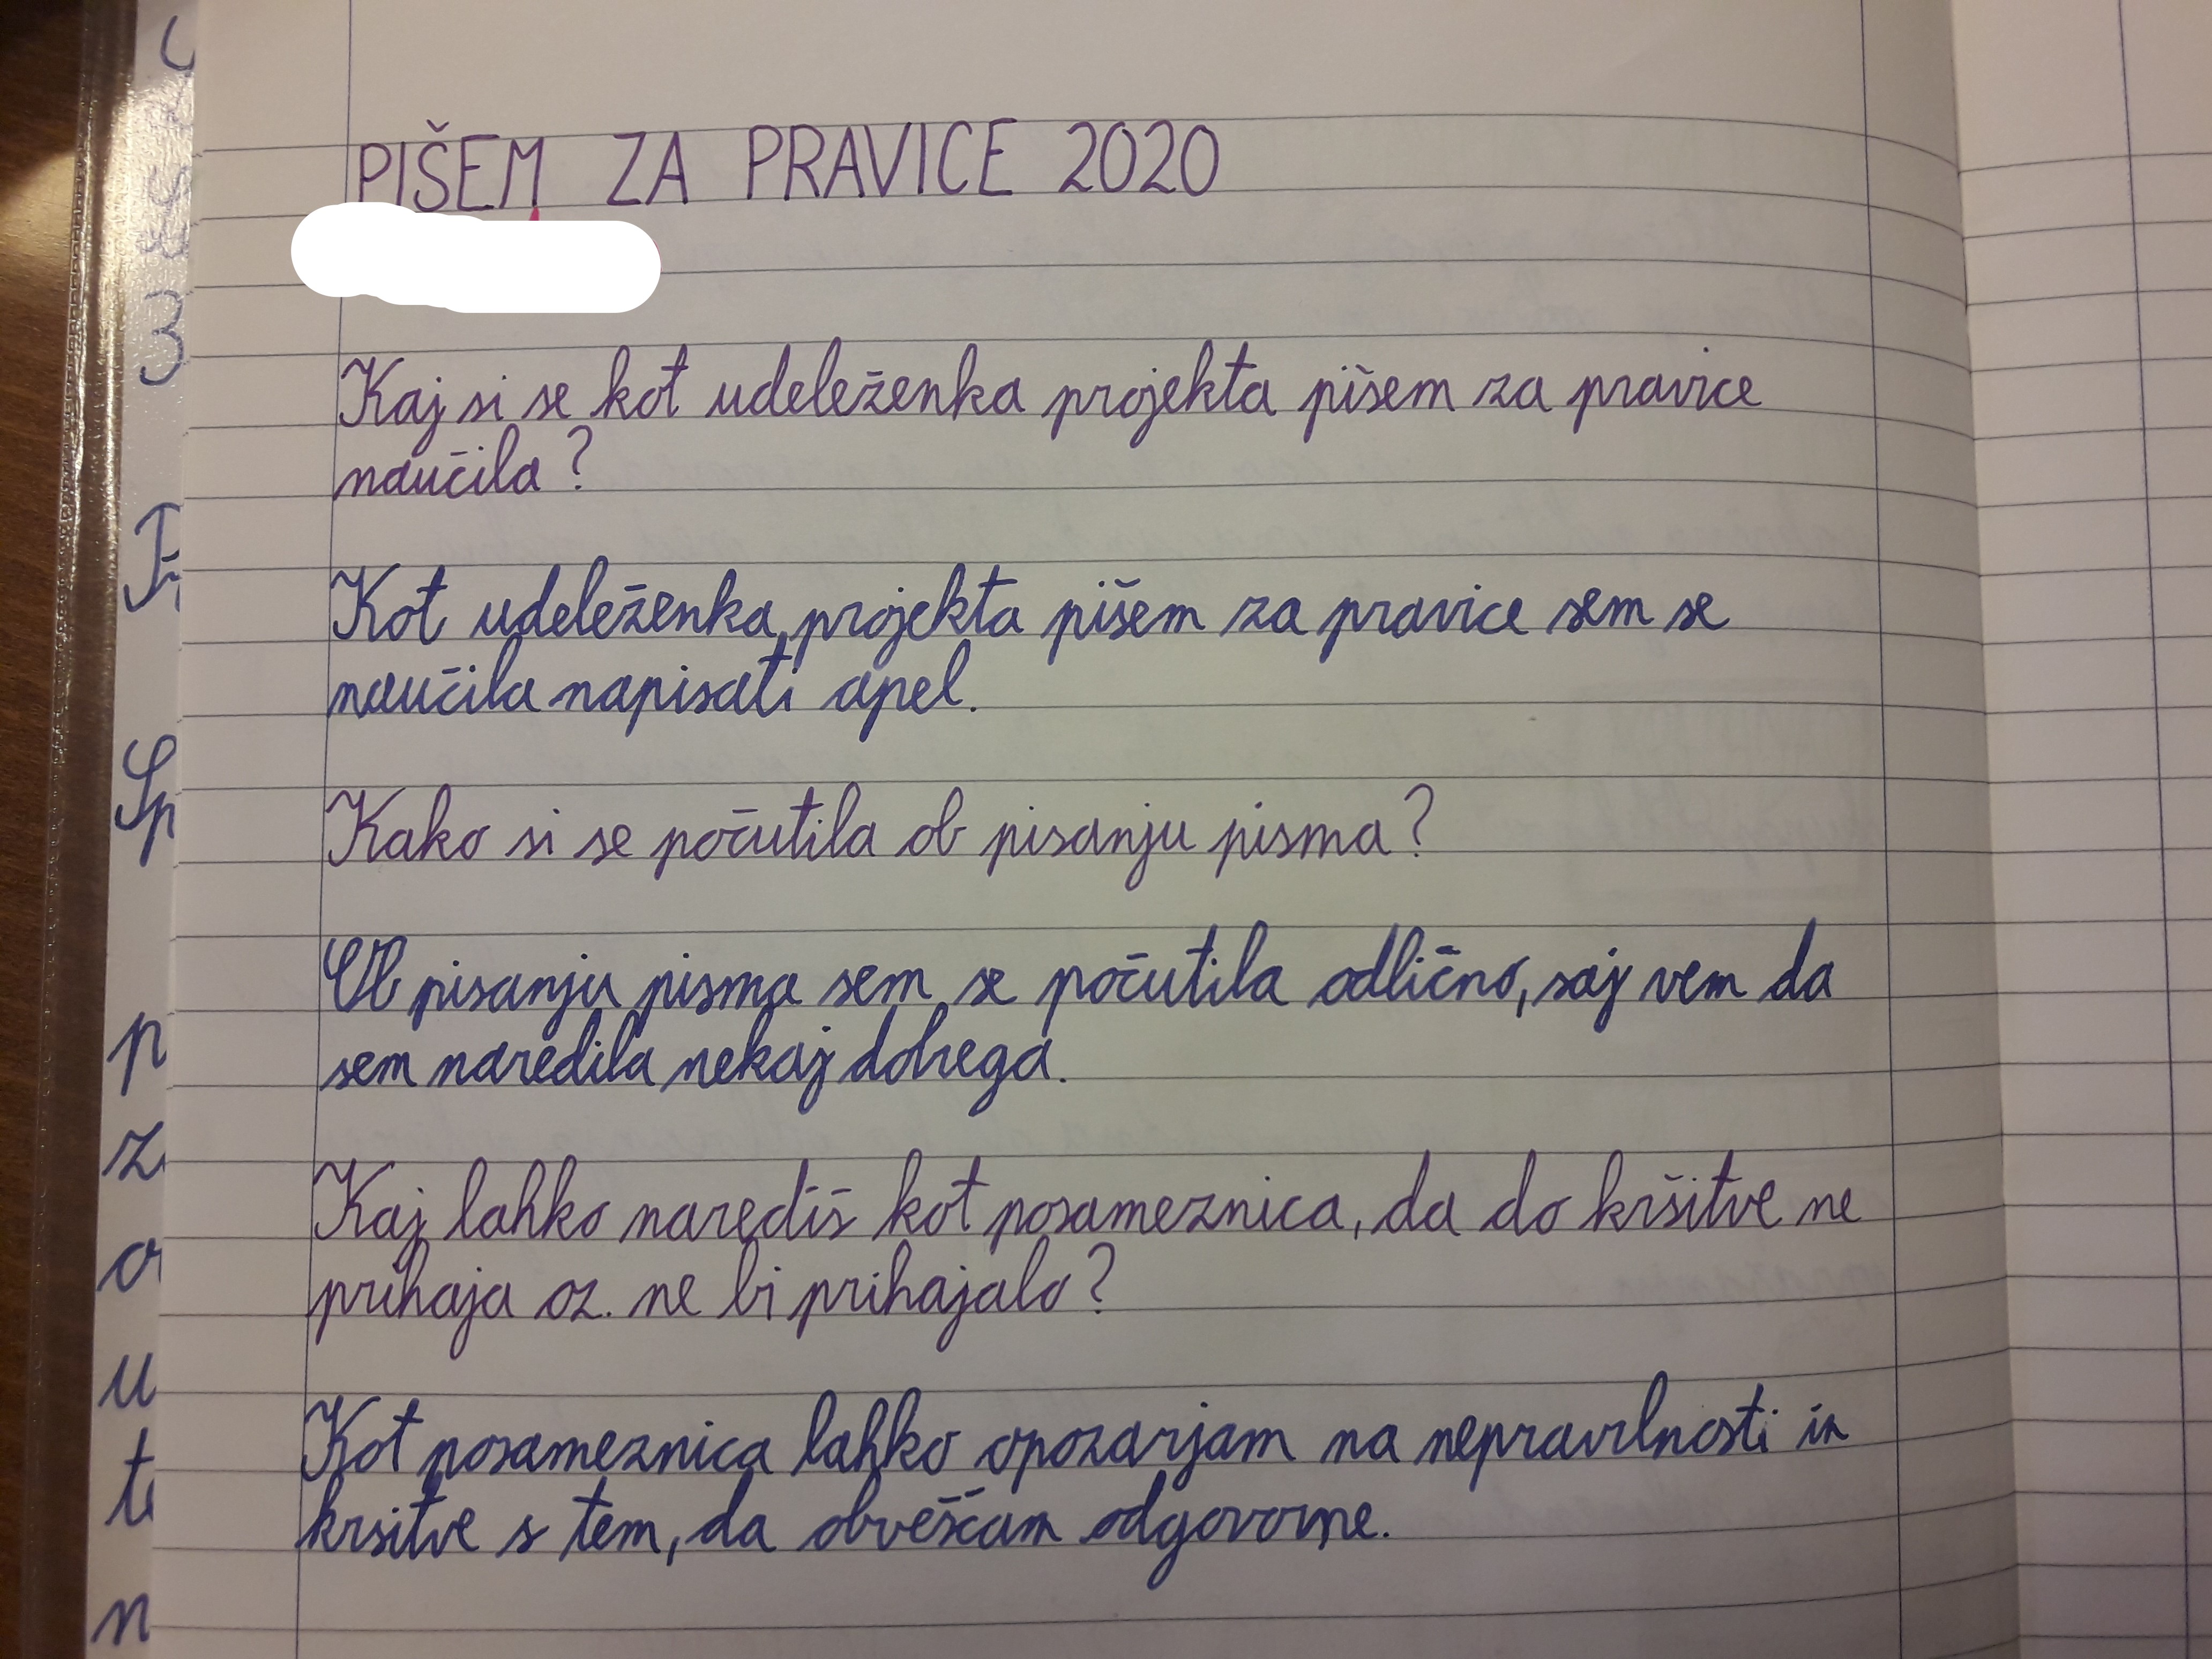 PIŠEM ZA PRAVICE 2020
Kaj si se kot udeleženka projekta pišem za pravice
naučila?
Kot udeleženka projekta pišem za pravice sem se
naučila napisati apel.
Kako si se počutila ob pisanju pisma?
Ob pisanju pisma sem se počutila odlično, saj vem da
sem naredila nekaj dobrega.
Kaj lahko narediš kot posameznica, da do kršitve ne
prihaja oz. ne bi prihajalo?
Kot posameznica lahko opozarjam na nepravilnosti in
krsitve s tem, da obveščam odgovorne.